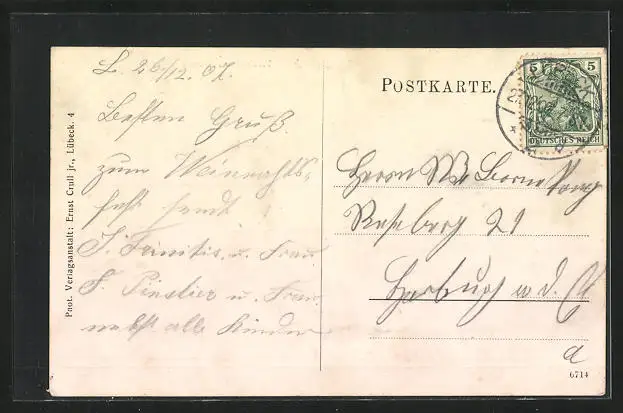 L. 26/12. 07.
Besten Gruß
zum Weinachts-
fest sendt
J. Trinitis u. Frau
F. u. Frau
nebst alle Kinder
POSTKARTE.
5 5
DEUTSCHES REICH
Herrn W
Roseberg 21
Harburg a d. E
a
Phot. Verlagsanstalt: Ernst Crull jr., Lübeck. 4
6714